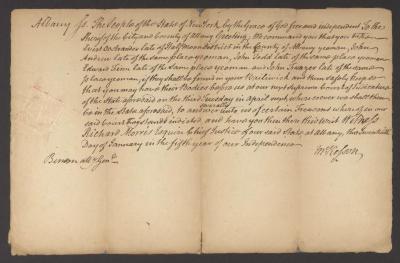 Albany ss. The People of the State of New York, by the Grace of God free and independent To the
Sheriff of the City and County of Albany Greeting; We command you that you take
late of Halfmoon District in the County of Albany yeoman, John
Andrew late of the same place yeoman, John Todd late of the same place yeoman
Edward Finn late of the same place yeoman and John Fraser late of the same
place yeoman, if they shall be found in your Bailiwick and them safely keep so
that you may have their Bodies before us at our supreme Court of Judicature
of the State aforesaid on the third Tuesday in April next wheresoever we shall then
be in the State aforesaid, to answer severally unto us of certain Treasons whereof in our
said Court they stand indicted and have you then there this Writ Witness
Richard Morris Esquire Chief Justice of our said State at Albany, this Twentieth
Day of January in the fifth year of our Independence
Benson Att. Gen.
McKesson